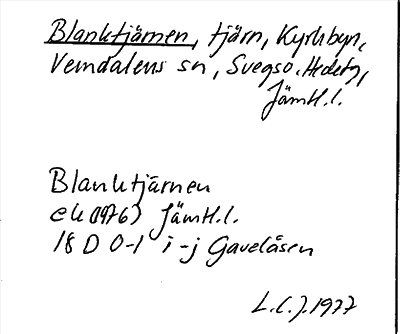 Blanktjärnen, tjärn, Kyrkbyn,
Vemdalens sn, Svegso. Hedetg,
Jämtl.l.
Blanktjärnen
ek (1976) Jämtl.l.
18 D 0-1 i-j Gaveläsen
L.C.J. 1977